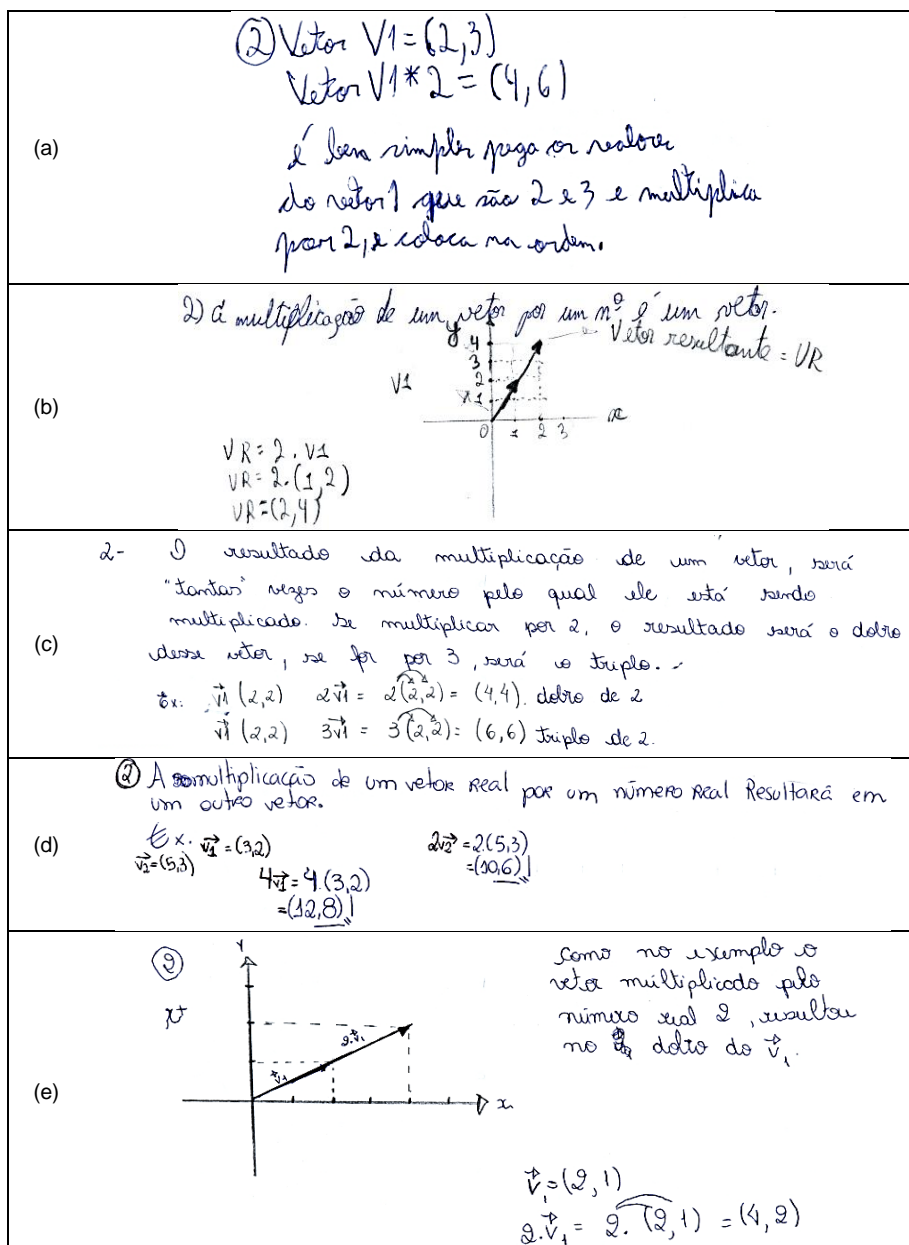 (a)
② Vetor V1 = (2,3)
Vetor V1*2 = (4,6)
é bem simples pega os valores
do vetor 1 que são 2 e 3 e multiplica
por 2, e coloca na ordem.
(b)
2) A multiplicação de um vetor por um nº é um vetor.
Vetor resultante = VR
y
4
3
2
1
V1
x
0 1 2 3
VR = 2 . V1
VR = 2.(1,2)
VR = (2,4)
(c)
2- O resultado da multiplicação de um vetor, será
"tantas" vezes o número pelo qual ele está sendo
multiplicado. Se multiplicar por 2, o resultado será o dobro
desse vetor, se for por 3, será o triplo.
Ex: v⃗1 (2,2) 2v⃗1 = 2(2,2) = (4,4). dobro de 2
v⃗1 (2,2) 3v⃗1 = 3(2,2) = (6,6) triplo de 2.
(d)
② A multiplicação de um vetor Real por um número Real Resultará em
um outro vetor.
Ex. v⃗1 = (3,2)
v⃗2 = (5,3)
4v⃗1 = 4.(3,2)
= (12,8)
2v⃗2 = 2.(5,3)
= (10,6)
(e)
②
Y
v⃗1
2.v⃗1
x
Como no exemplo o
vetor multiplicado pelo
número real 2, resultou
no dobro do v⃗1.
v⃗1 = (2,1)
2.v⃗1 = 2.(2,1) = (4,2)